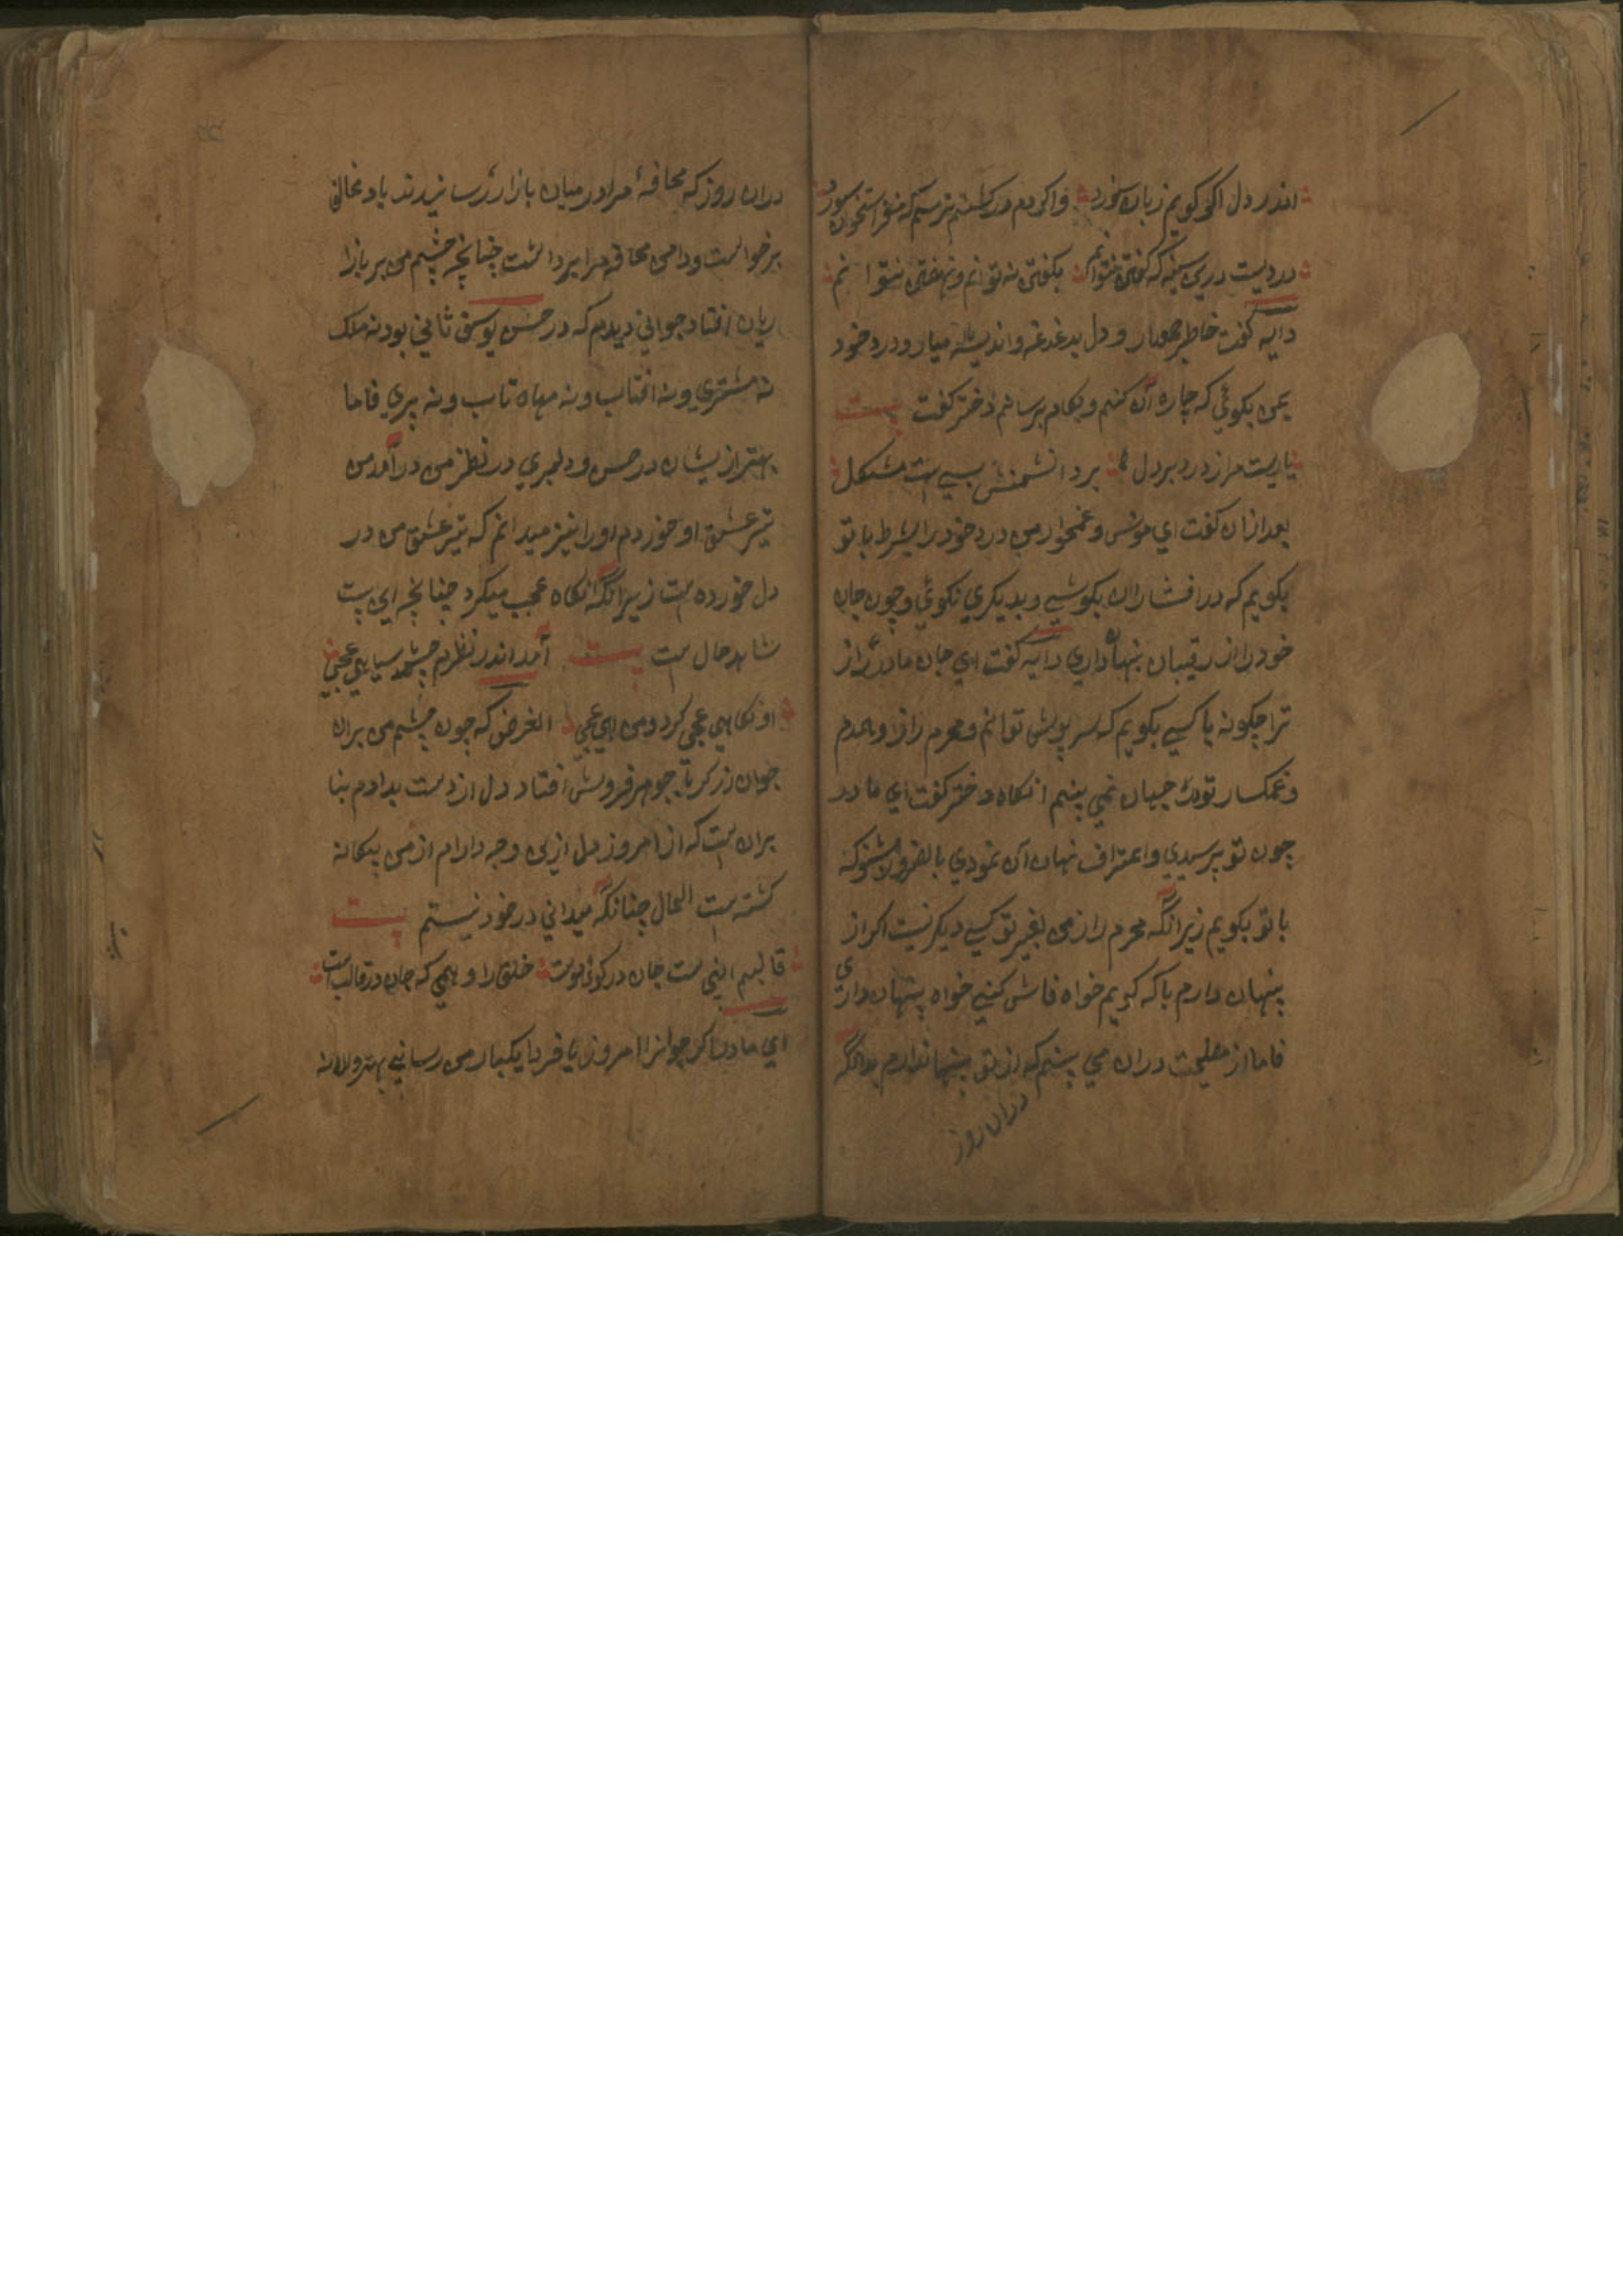 اندر دل اکر کویم زبان سوزد واکر دم در کشم ترسم که مغز استخوان سوزد
دردیست درین سینه که کفتن نتوانم بکفتن نه توانم و نهفتن نتوانم
دایه کفت خاطر جمعدار و دل بدغدغه و اندیشه میار و درد خود
بمن بکوئی که چاره آن کنم و بکام برسانم دختر کفت بیت
مرا درد بر دل مشکل
بعد ازان کفت ای مونس و غمخوار من درد خود را بشرط با تو
بکویم که در افشا ران نکوشی و بدیکری نکوئی و چون جان
خود را از رقیبان پنهان داری دایه کفت ای جان مادر راز
ترا چکونه با کسی بکویم که سر پوش توانم و محرم راز و همدم
و غمکسار تو در جهان نمی بینم انکاه دختر کفت ای مادر
چون تو پرسیدی و اعتراف نهان آن نمودی بالضرور شنو که
با تو بکویم زیرانکه محرم راز من بغیر تو کسی دیکر نیست اکر از
پنهان دارم با که کویم خواه فاش کنی خواه پنهان داری
فاما از مصلحت دران می بینم که از تو پنهان ندارم بدانکه
دران روز
دران روز که محافهٔ مرا در میان بازار رسانیدند باد مخالف
برخواست و دامن محافه مرا برداشت چنانچه چشم من بر بازا
ریان افتاد جوانی دیدم که در حسن یوسف ثانی بود نه ملک
نه مشتری و نه افتاب و نه مهاه تاب و نه پری فاما
بهتر ازیشان در حسن و دلبری در نظر من در آمد من
تیر عشق او خوردم او را نیز میدانم که تیر عشق من در
دل خورده است زیرانکه نکاه عجب میکرد چنانچه این بیت
شاهد حال است بیت آمد اندر نظرم چشم سیاهی عجبی
او نکاهی عجبی کرد و من اهی عجبی الغرض که چون چشم من بران
جوان زرکر جوهر فروش افتاد دل از دست بدادم بنا
بران است که از امروز دل ازین وجه دارام از من بیکانه
کشته است الحال چنانکه میدانی در خود نیستم بیت
قالبم اینجی است جان در کوی دوست خلق را وهمی که جان در قالب است
ای مادر اکر جوانرا امروز یا فردا یکبار من رسانی بهتر و الا نه